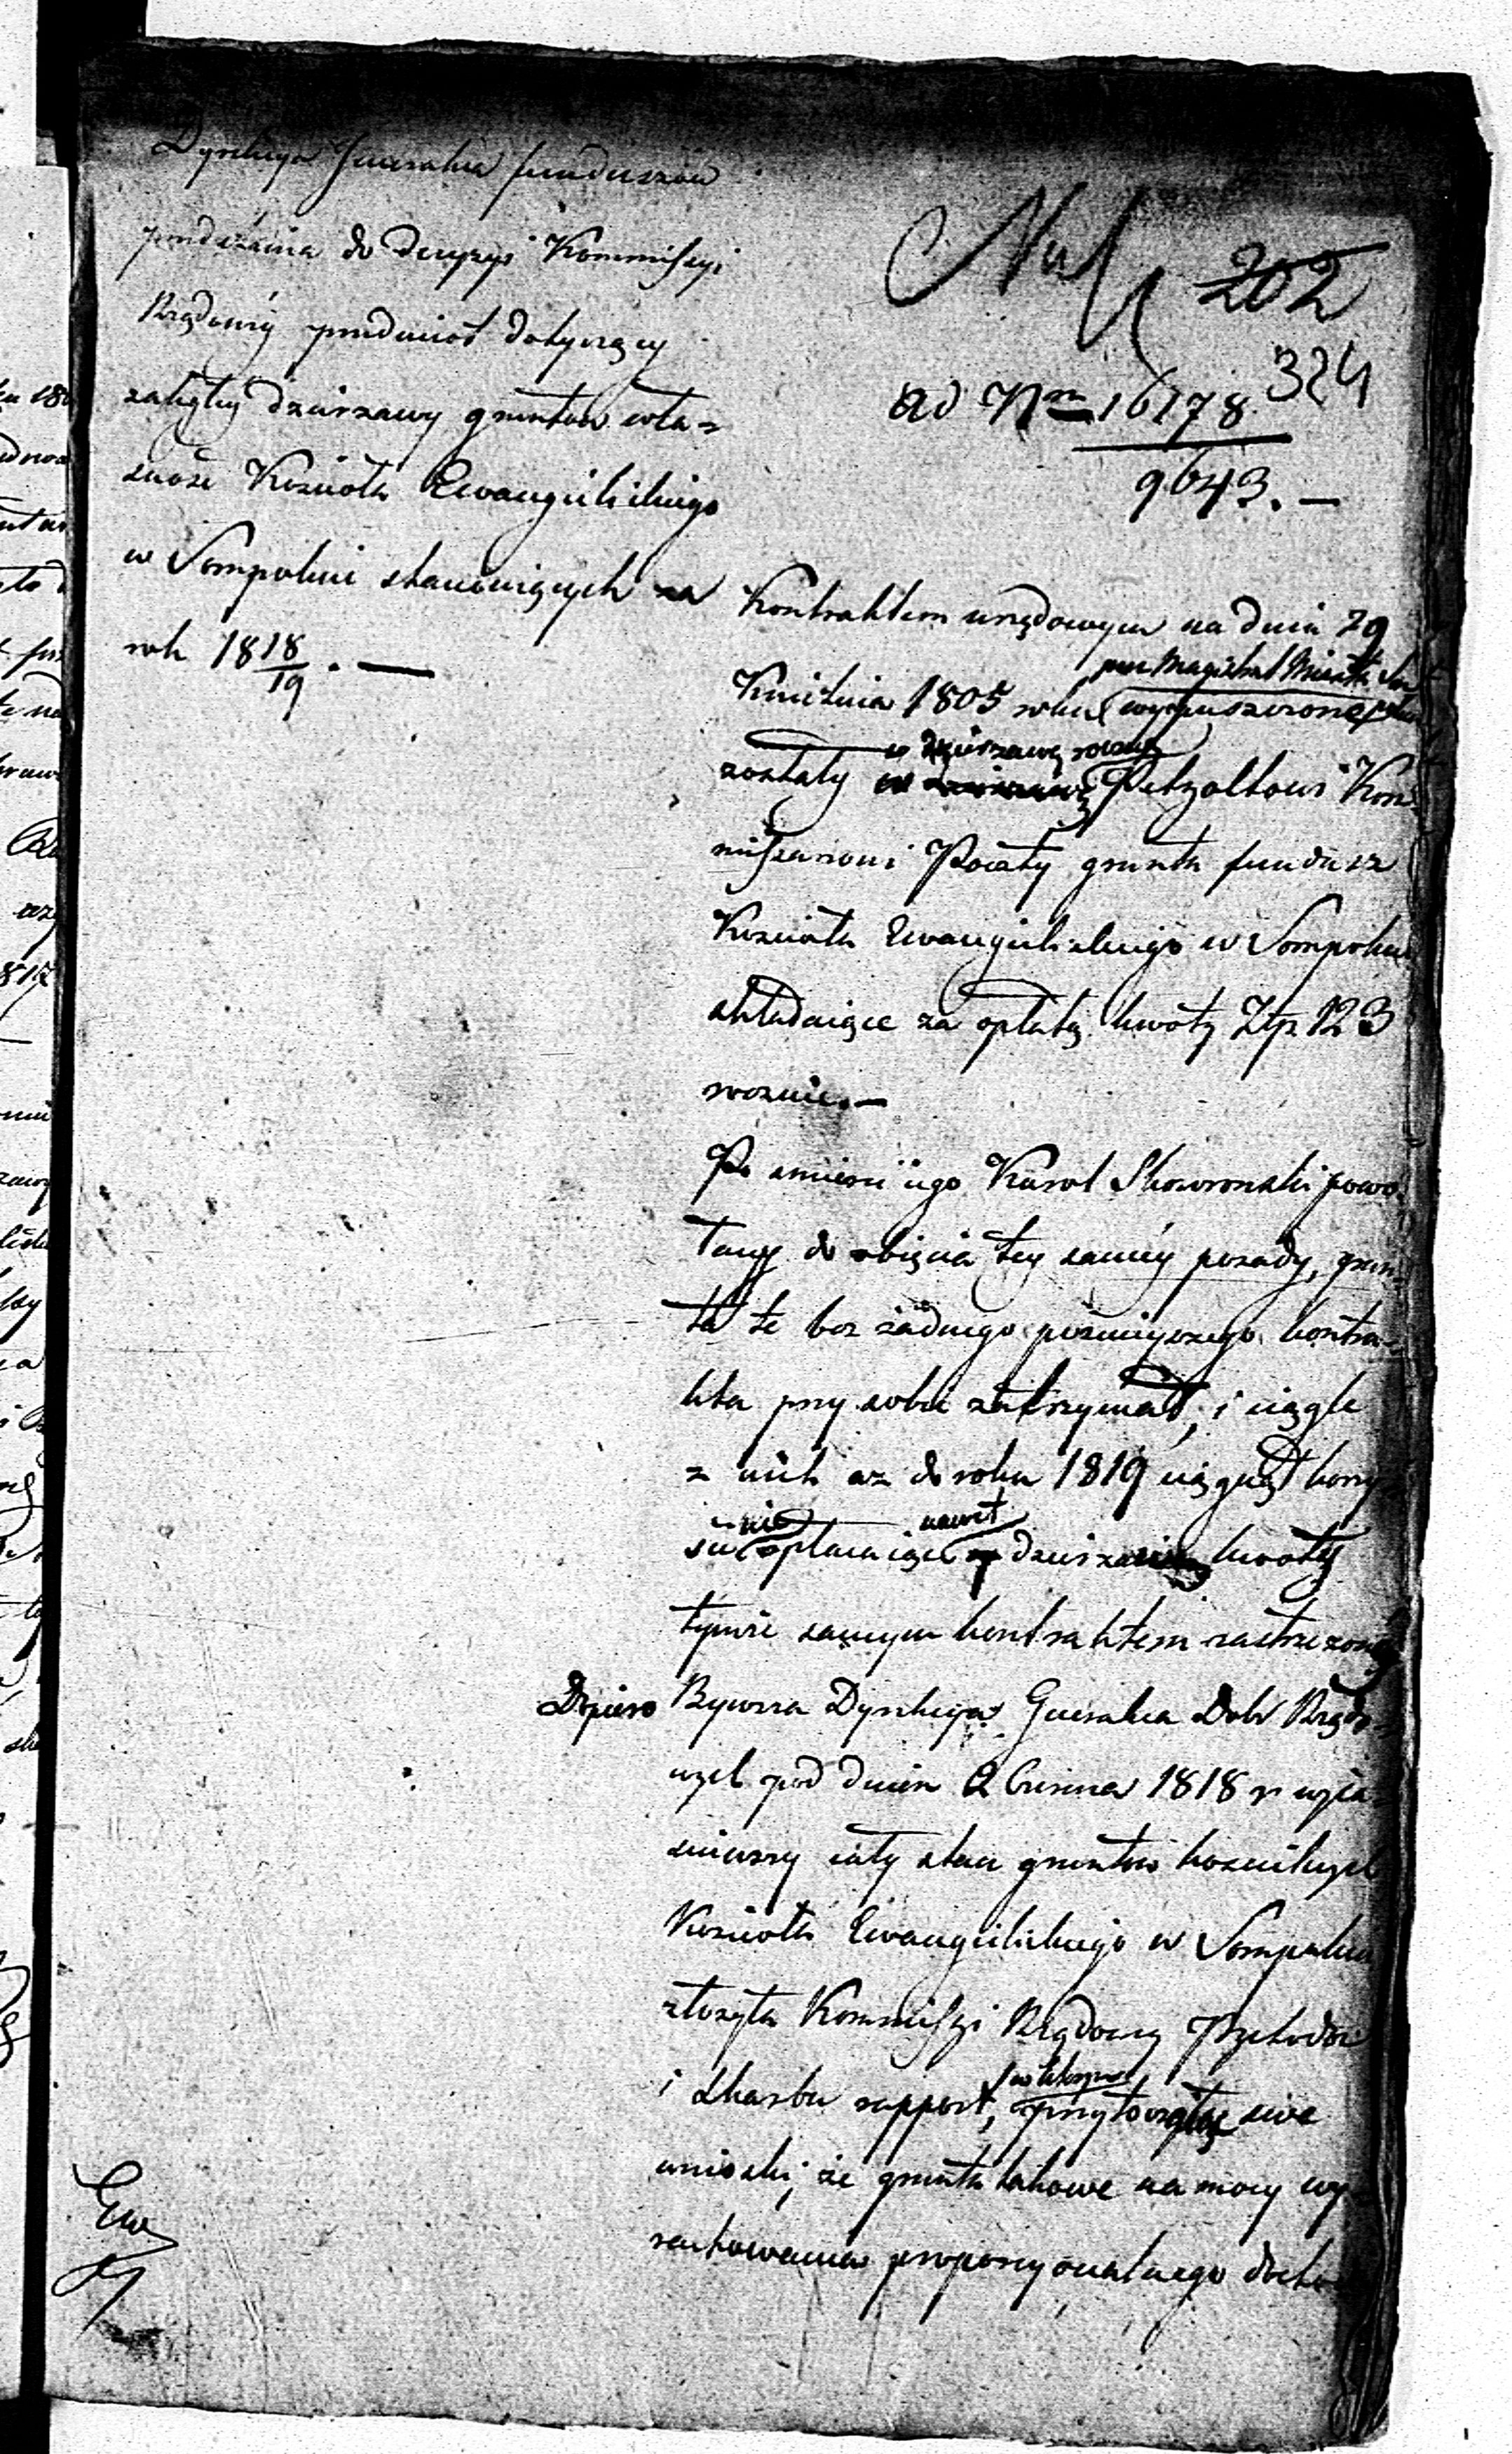 Dyrekcya Generalna funduszów
podesłania do decyzyi Kommissyi
Rządowéy przedmiot dotyczący
zaległey dzierzawy gruntów wła=
sność Kościoła Ewangielickiego
w Sompolnie stanowiących za
rok 1818/19. —
202
324
ad Nrm 16178
9643. —
Kontraktem urzędowym na dniu 29
przez Magistrat Miasta
Kwietnia 1805 roku wypuszczone
w dzierzawę roczną
zostały w dzierzawę Petzoltowi Kom=
missarzowi Poczty grunta fundusz
Kościoła Ewangielickiego w Sompolnie
składaiące za opłatą kwoty Złp 123
rocznie. —
Po śmierci iego Karol Skowronski powo=
łany do obięcia tey saméy posady, grun=
ta te bez żadnego poźnieyszego kontra=
ktu przy sobie zatrzymał, i ciągle
z nich aż do roku 1819 ciągnął korzy
nie nawet
ści opłacaiąc dzierzawney kwoty
tymże samym kontraktem zastrzezoney
Dopiero Bywsza Dyrekcya Generalna Dobr Rządo=
wych pod dniem 2 Czerwca 1818 r wyia=
śniwszy cały stan gruntów kościelnych
Kościoła Ewangielickiego w Sompolnie
złożyła Kommissyi Rządowey Przychodów
w którym
i Skarbu rapport, przytoczyła swe
wnioski, że grunta takowe na mocy wy=
rachowania proporcyonalnego docho
Ew